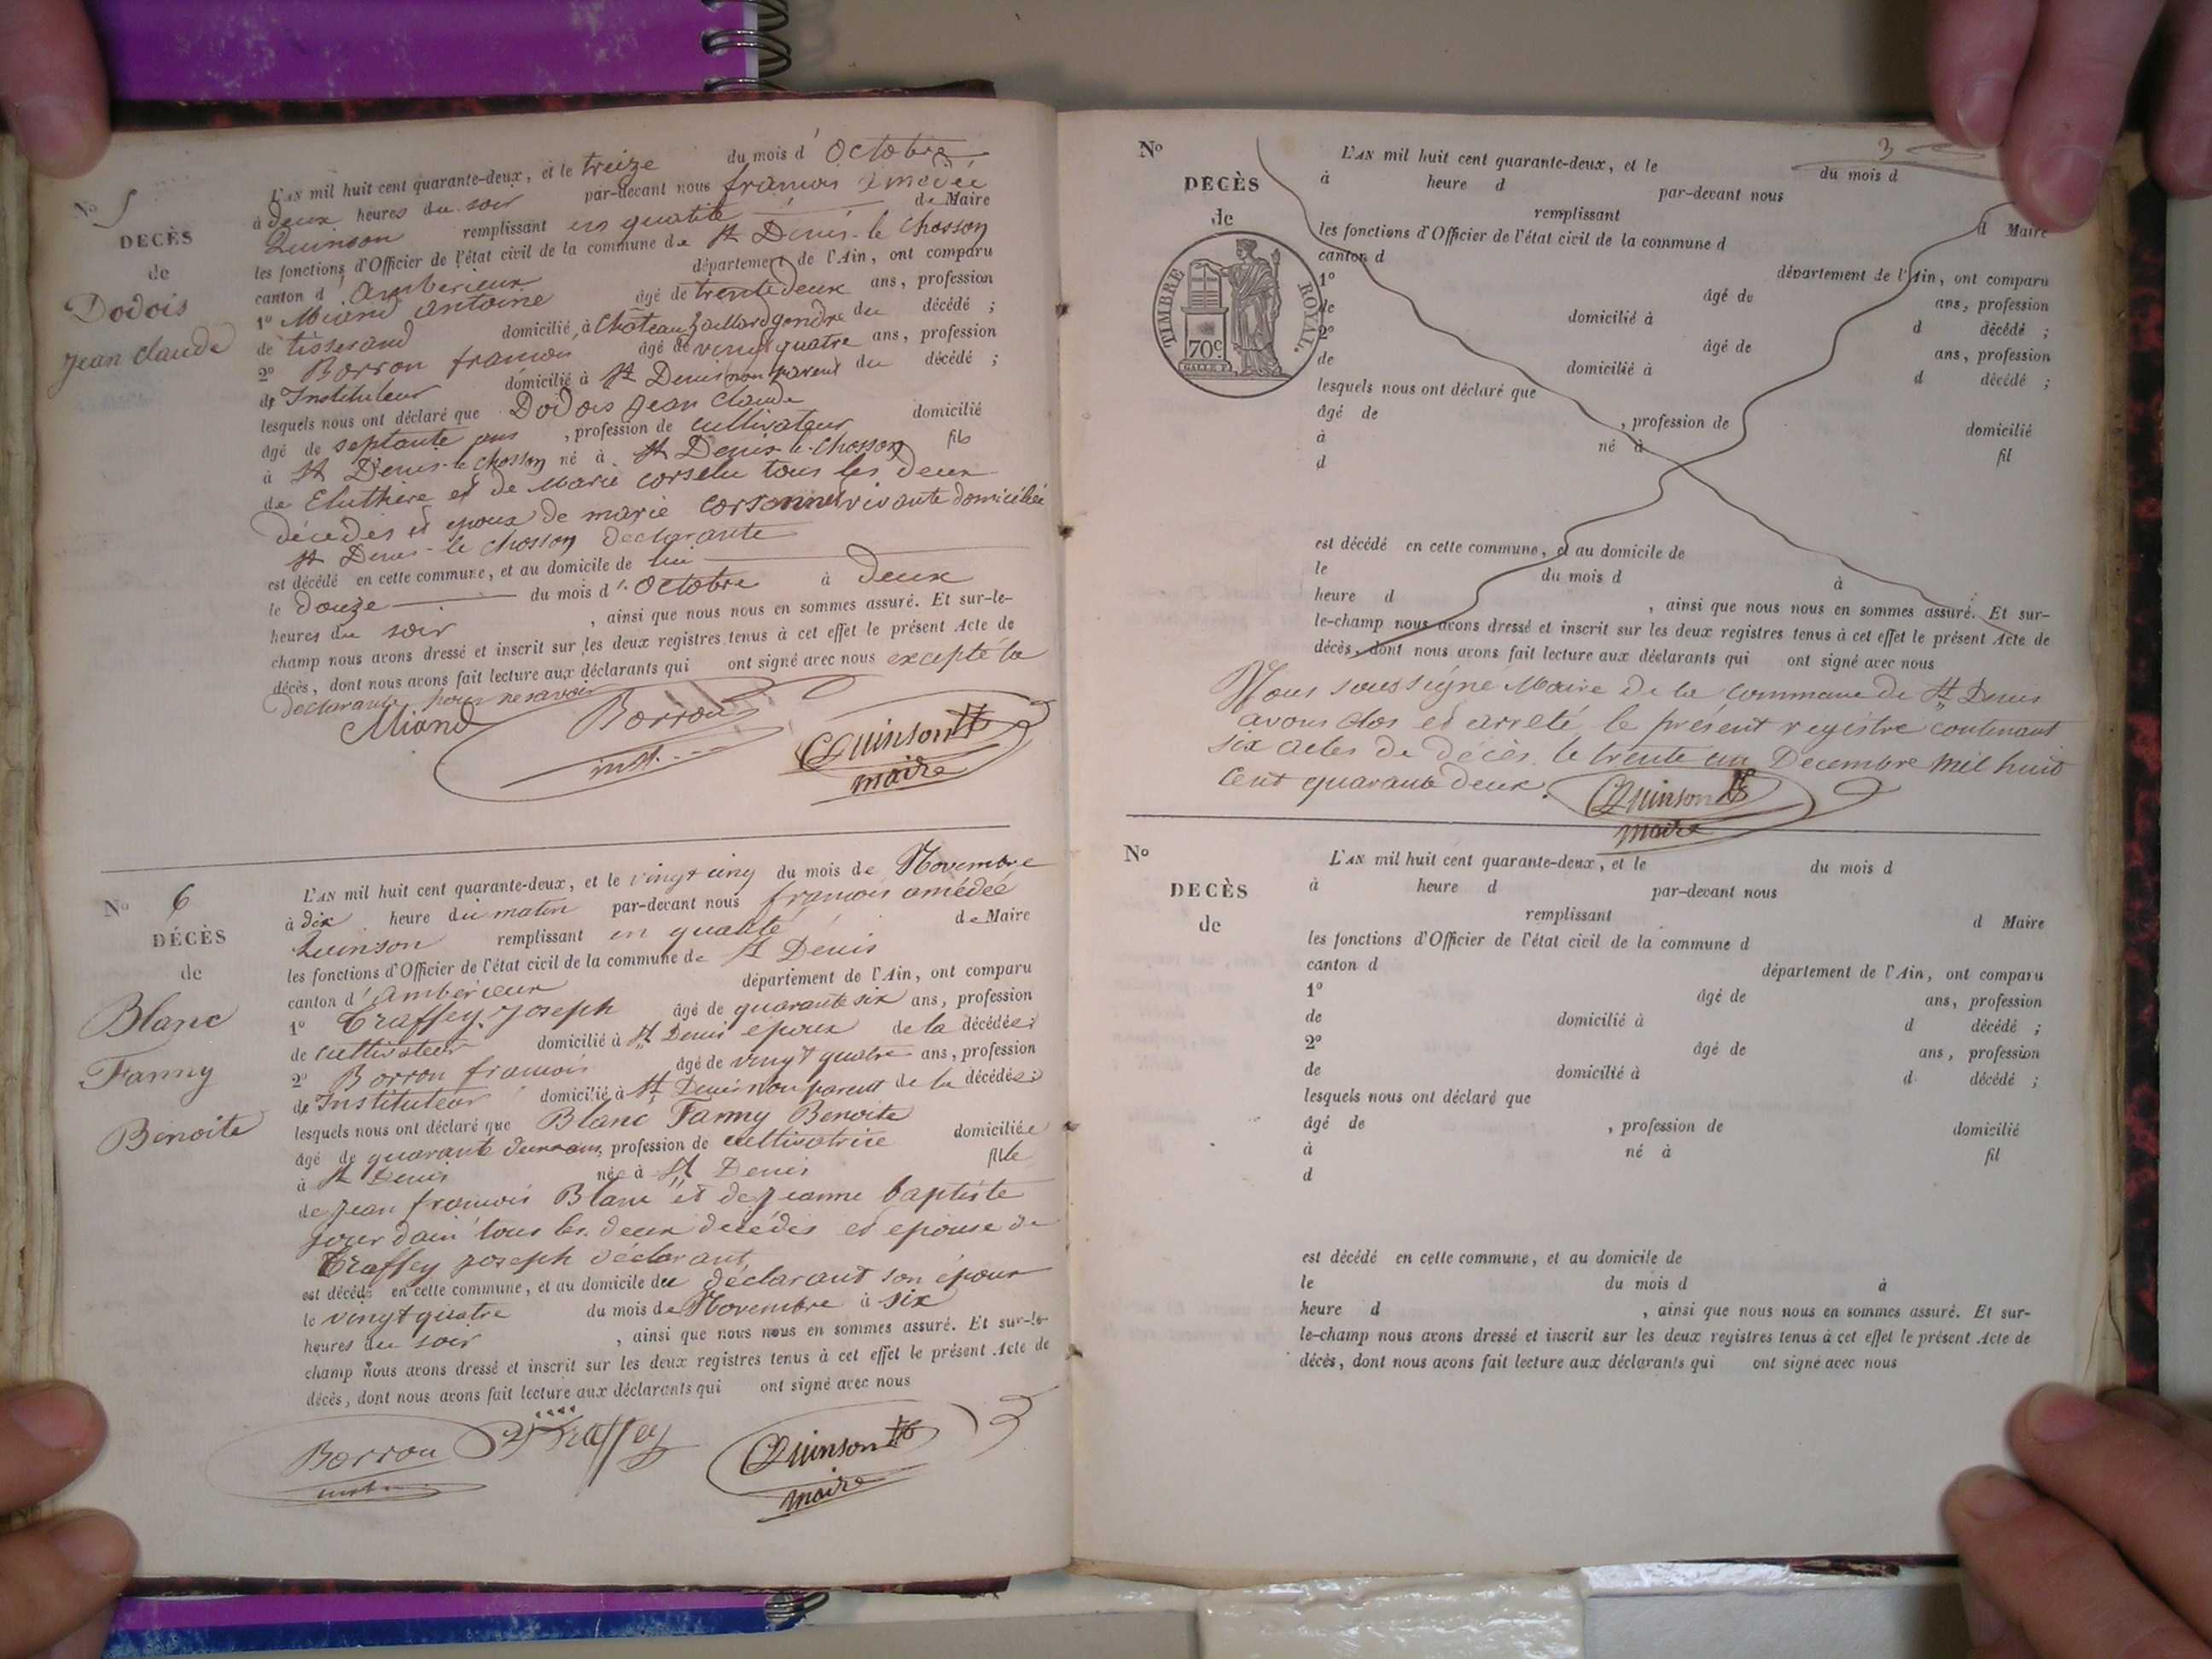 N° 5
DECÈS
de
Dodois
Jean Claude
L'AN mil huit cent quarante-deux, et le treize du mois d' Octobre
à deux heures du soir par-devant nous françois amédée
Quinson remplissant en qualité de Maire
les fonctions d'Officier de l'état civil de la commune de St Denis-le Chosson
canton d' Ambérieux département de l'Ain, ont comparu
1° Miand antoine âgé de trente deux ans, profession
de tisserand domicilié à Château gaillard gendre du décédé ;
2° Borron francois âgé de vingt quatre ans, profession
de Instituteur domicilié à St Denis non parent du décédé ;
lesquels nous ont déclaré que Dodois Jean Claude
âgé de septante ans , profession de cultivateur domicilié
à St Denis-le Chosson né à St Denis-le-Chosson fils
de Eluthère et de Marie corselu tous les deux
décédés et epoux de marie vivante domiciliée
St Denis-le chosson declarante
est décédé en cette commune, et au domicile de lui
le douze du mois d' Octobre à deux
heures du soir , ainsi que nous nous en sommes assuré. Et sur-le-
champ nous avons dressé et inscrit sur les deux registres tenus à cet effet le présent Acte de
décès, dont nous avons fait lecture aux déclarants qui ont signé avec nous excepté la
declarante pour ne savoir
Miand Borron Quinson
inst. maire
N° 6
DÉCÈS
de
Blanc
Fanny
Benoite
L'AN mil huit cent quarante-deux, et le vingt cinq du mois de Novembre
à dix heure du matin par-devant nous francois amédée
Quinson remplissant en qualité de Maire
les fonctions d'Officier de l'état civil de la commune de St Denis
canton d' ambérieux département de l'Ain, ont comparu
1° Traffey Joseph âgé de quarante six ans, profession
de cultivateur domicilié à St Denis epoux de la décédée ;
2° Borron francois âgé de vingt quatre ans, profession
de Instituteur domicilié à St Denis non parent de la décédée ;
lesquels nous ont déclaré que Blanc Fanny Benoite
âgé de quarante deux ans, profession de cultivatrice domiciliée
à St Denis née à St Denis fille
de Jean francois Blanc et de Jeanne baptiste
jourdain tous les deux décédés et epouse de
Traffey Joseph déclarant
est décédé en cette commune, et au domicile du déclarant son époux
le vingt quatre du mois de Novembre à six
heures du soir , ainsi que nous nous en sommes assuré. Et sur-le-
champ nous avons dressé et inscrit sur les deux registres tenus à cet effet le présent Acte de
décès, dont nous avons fait lecture aux déclarants qui ont signé avec nous
Borron Traffey Quinson
maire
3
N°
DECÈS
de
TIMBRE ROYAL.
70c
L'AN mil huit cent quarante-deux, et le du mois d
à heure d par-devant nous
remplissant d Maire
les fonctions d'Officier de l'état civil de la commune d
canton d département de l'Ain, ont comparu
1° âgé de ans, profession
de domicilié à d décédé ;
2° âgé de ans, profession
de domicilié à d décédé ;
lesquels nous ont déclaré que
âgé de , profession de domicilié
à né à fil
d
est décédé en cette commune, et au domicile de
le du mois d à
heure d , ainsi que nous nous en sommes assuré. Et sur-
le-champ nous avons dressé et inscrit sur les deux registres tenus à cet effet le présent Acte de
décès, dont nous avons fait lecture aux déclarants qui ont signé avec nous
Nous soussigné Maire de la commune de St Denis
avons clos et arreté le présent registre contenant
six actes de décès le trente un Decembre mil huit
cent quarante deux. Quinson
maire
N°
DECÈS
de
L'AN mil huit cent quarante-deux, et le du mois d
à heure d par-devant nous
remplissant d Maire
les fonctions d'Officier de l'état civil de la commune d
canton d département de l'Ain, ont comparu
1° âgé de ans, profession
de domicilié à d décédé ;
2° âgé de ans, profession
de domicilié à d décédé ;
lesquels nous ont déclaré que
âgé de , profession de domicilié
à né à fil
d
est décédé en cette commune, et au domicile de
le du mois d à
heure d , ainsi que nous nous en sommes assuré. Et sur-
le-champ nous avons dressé et inscrit sur les deux registres tenus à cet effet le présent Acte de
décès, dont nous avons fait lecture aux déclarants qui ont signé avec nous